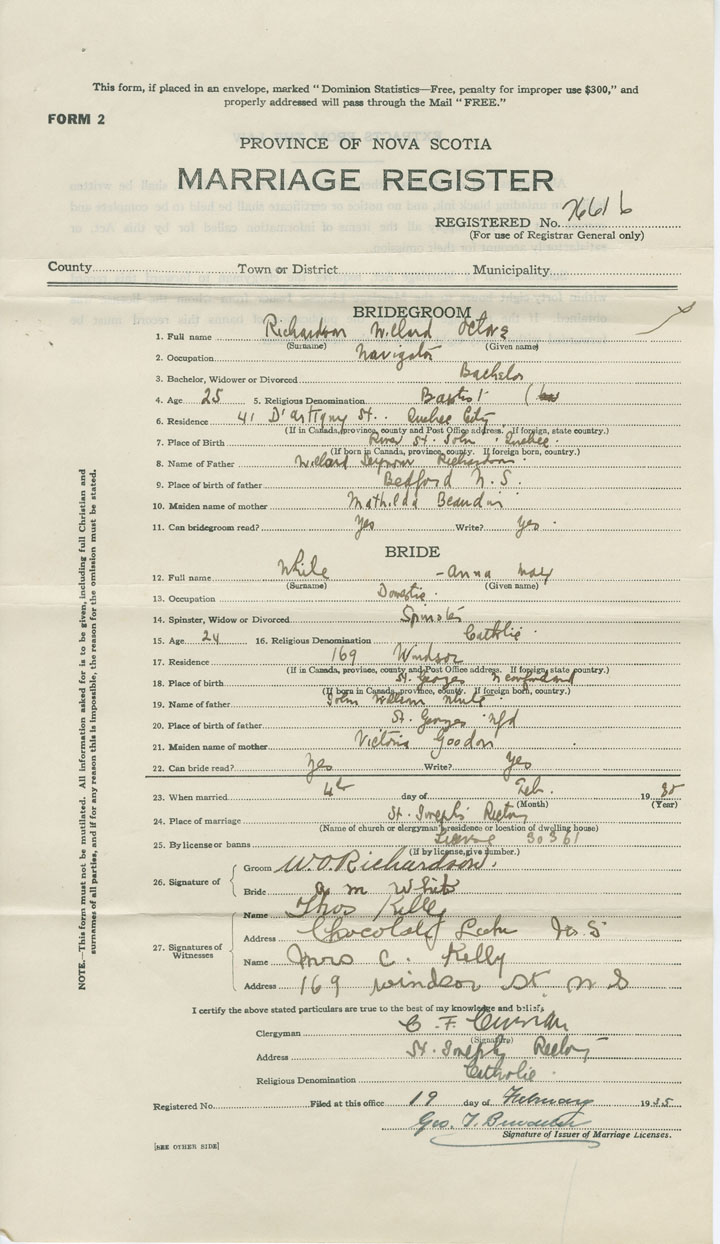 This form, if placed in an envelope, marked "Dominion Statistics—Free, penalty for improper use $300," and
properly addressed will pass through the Mail "FREE."
FORM 2
PROVINCE OF NOVA SCOTIA
MARRIAGE REGISTER
REGISTERED No. 7661 b
(For use of Registrar General only)
County Town or District Municipality
BRIDEGROOM
1. Full name Richardson Willard Octave
(Surname) (Given name)
2. Occupation Navigator
3. Bachelor, Widower or Divorced Bachelor
4. Age 25 5. Religious Denomination Baptist
6. Residence 41 D'artigny St. Quebec City
(If in Canada, province, county and Post Office address. If foreign, state country.)
7. Place of Birth River St. John Quebec
(If born in Canada, province, county. If foreign born, country.)
8. Name of Father Willard Seymour Richardson
9. Place of birth of father Bedford N.S.
10. Maiden name of mother Mathilda Beaudin
11. Can bridegroom read? Yes Write? Yes
BRIDE
12. Full name White -Anna May
(Surname) (Given name)
13. Occupation Domestic
14. Spinster, Widow or Divorced Spinster
15. Age 24 16. Religious Denomination Catholic
17. Residence 169 Windsor
(If in Canada, province, county and Post Office address. If foreign, state country.)
18. Place of birth St. Georges Newfoundland
(If born in Canada, province, county. If foreign born, country.)
19. Name of father John William White
20. Place of birth of father St. Georges Nfd
21. Maiden name of mother Victoria Goodon
22. Can bride read? Yes Write? Yes
23. When married 4th day of Feb. 1935
(Month) (Year)
24. Place of marriage St. Joseph's Rectory
(Name of church or clergyman's residence or location of dwelling house)
25. By license or banns License 30361
(If by license, give number.)
26. Signature of Groom W.O. Richardson.
Bride A M White
27. Signatures of Witnesses Name Thos Kelly
Address Chocolate Lake N.S
Name Mrs C. Kelly
Address 169 Windsor St N S
I certify the above stated particulars are true to the best of my knowledge and belief.
Clergyman C. F. Curran
(Signature)
Address St. Joseph's Rectory
Religious Denomination Catholic
Registered No. Filed at this office 19 day of February 1935
Geo. T.
Signature of Issuer of Marriage Licenses.
[SEE OTHER SIDE]
NOTE.—This form must not be mutilated. All information asked for is to be given, including full Christian and
surnames of all parties, and if for any reason this is impossible, the reason for the omission must be stated.